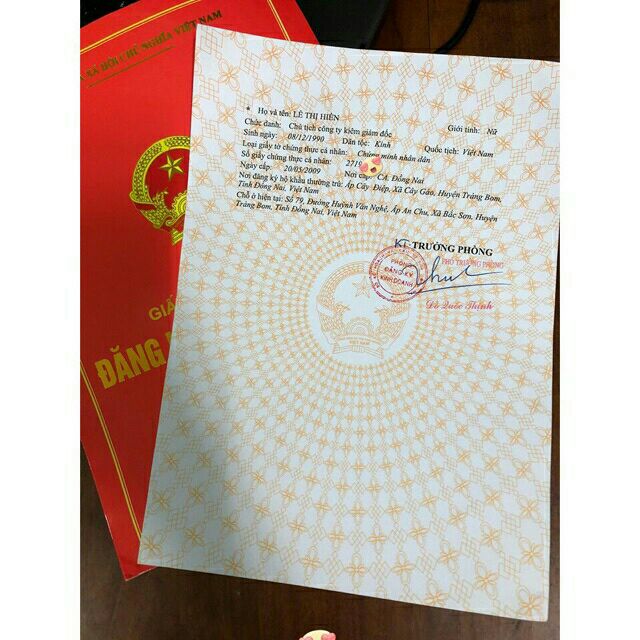 XÃ HỘI CHỦ NGHĨA VIỆT NAM
GIẤ
ĐĂNG
* Họ và tên: LÊ THỊ HIỀN Giới tính: Nữ
Chức danh: Chủ tịch công ty kiêm giám đốc
Sinh ngày: 08/12/1990 Dân tộc: Kinh Quốc tịch: Việt Nam
Loại giấy tờ chứng thực cá nhân: Chứng minh nhân dân
Số giấy chứng thực cá nhân: 2719
Ngày cấp: 20/05/2009 Nơi cấp: CA. Đồng Nai
Nơi đăng ký hộ khẩu thường trú: Ấp Cây Điệp, Xã Cây Gáo, Huyện Trảng Bom,
Tỉnh Đồng Nai, Việt Nam
Chỗ ở hiện tại: Số 79, Đường Huỳnh Văn Nghệ, Ấp An Chu, Xã Bắc Sơn, Huyện
Trảng Bom, Tỉnh Đồng Nai, Việt Nam
KT. TRƯỞNG PHÒNG
PHÓ TRƯỞNG PHÒNG
PHÒNG
ĐĂNG KÝ
KINH DOANH
Đỗ Quốc Thịnh